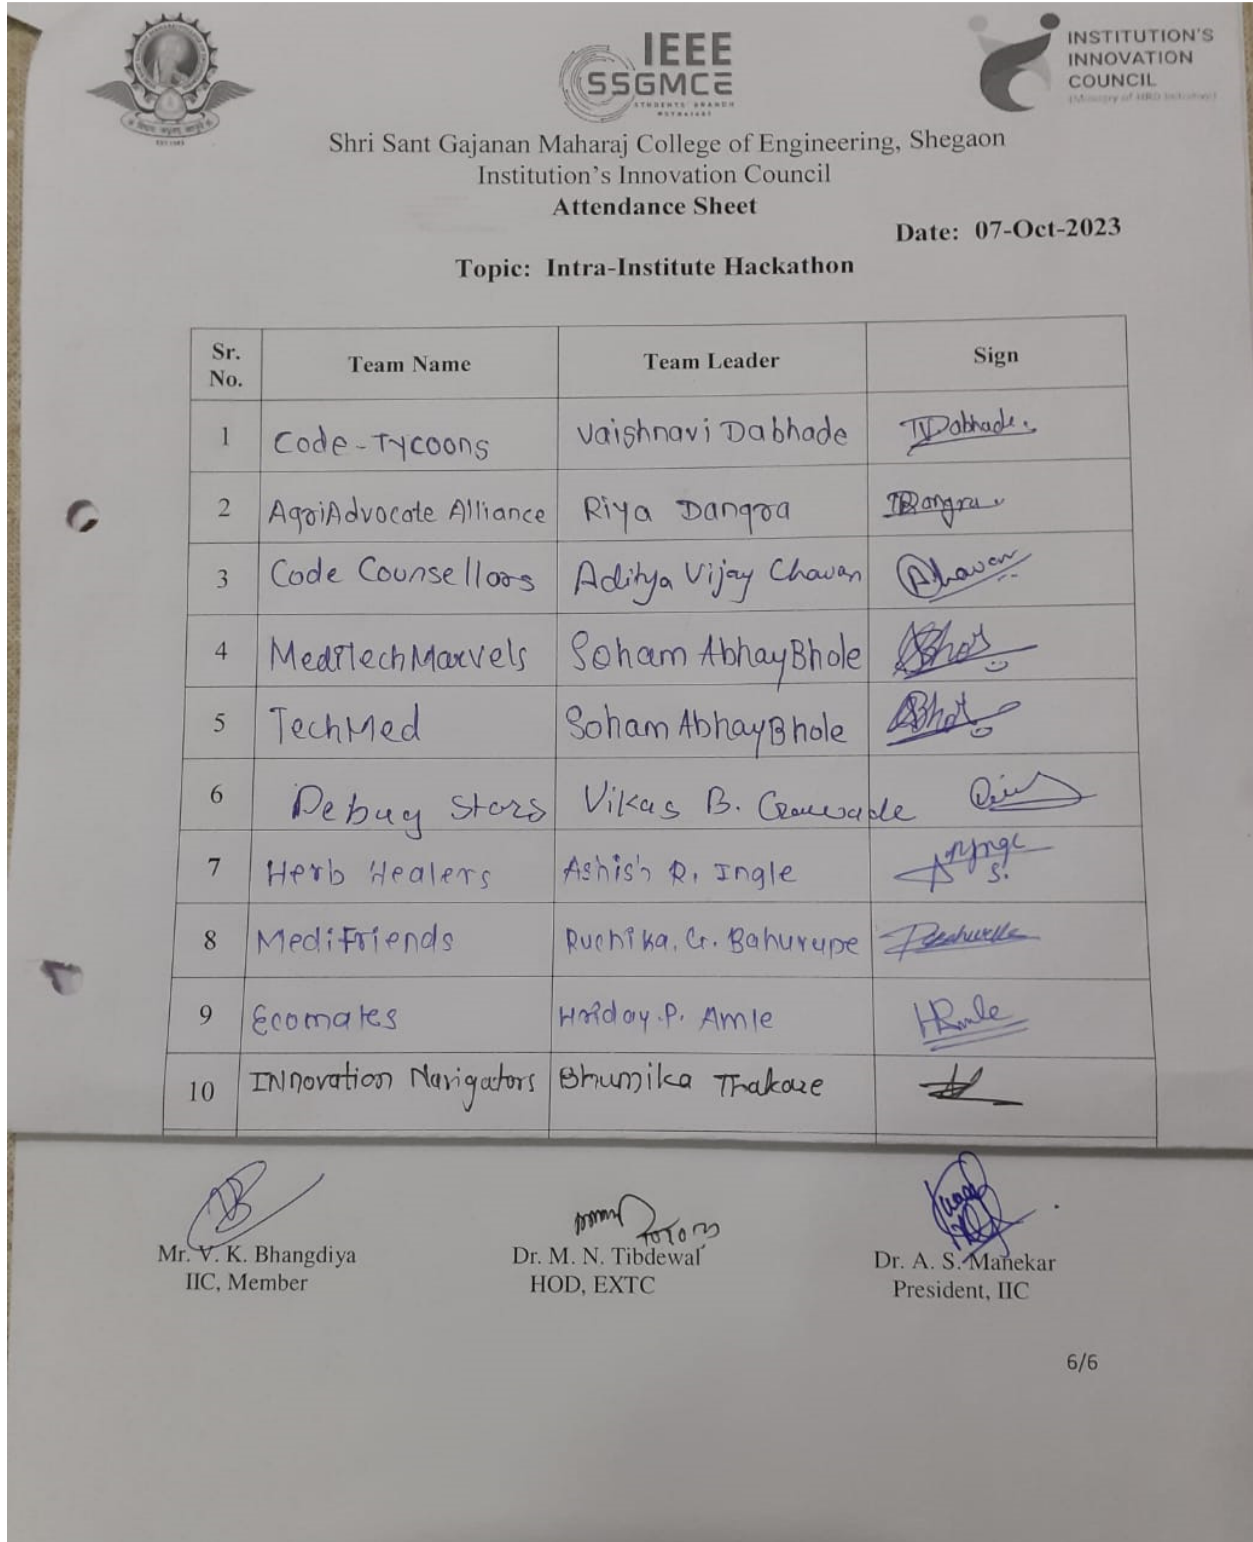 IEEE
SSGMCE
STUDENTS' BRANCH
INSTITUTION'S
INNOVATION
COUNCIL
(Ministry of HRD Initiative)
Shri Sant Gajanan Maharaj College of Engineering, Shegaon
Institution's Innovation Council
Attendance Sheet
Date: 07-Oct-2023
Topic: Intra-Institute Hackathon
Sr. No. Team Name Team Leader Sign
1 Code-Tycoons Vaishnavi Dabhade Dabhade.
2 AgriAdvocate Alliance Riya Dangra Dangra
3 Code Counsellors Aditya Vijay Chavan
4 MediTechMarvels Soham Abhay Bhole
5 TechMed Soham Abhay Bhole
6 Debug Stars Vikas B. Gawade
7 Herb Healers Ashish R. Ingle
8 MediFriends Ruchika. G. Bahurupe
9 Ecomates Hriday.P. Amle
10 INnovation Navigators Bhumika Thakare
Mr. V. K. Bhangdiya
IIC, Member
Dr. M. N. Tibdewal
HOD, EXTC
Dr. A. S. Manekar
President, IIC
6/6